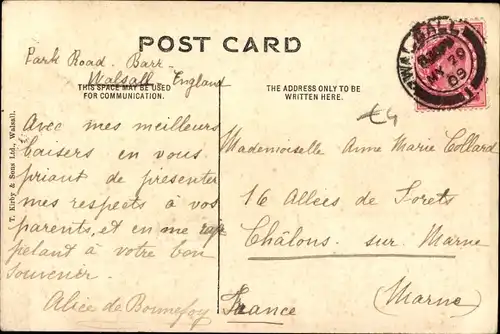 POST CARD
Park Road. Barr -
Walsall - England
THIS SPACE MAY BE USED
FOR COMMUNICATION.
THE ADDRESS ONLY TO BE
WRITTEN HERE.
WALSALL
MY 29
09
£4
Avec mes meilleurs
baisers en vous
priant de présenter
mes respects à vos
parents, et en me rap
pelant à votre bon
souvenir.
Alice de Bonnefoy
Mademoiselle Anne Marie Collard
16 Allées de Forets
Châlons. sur. Marne
(Marne)
France
T. Kirby & Sons Ltd., Walsall.